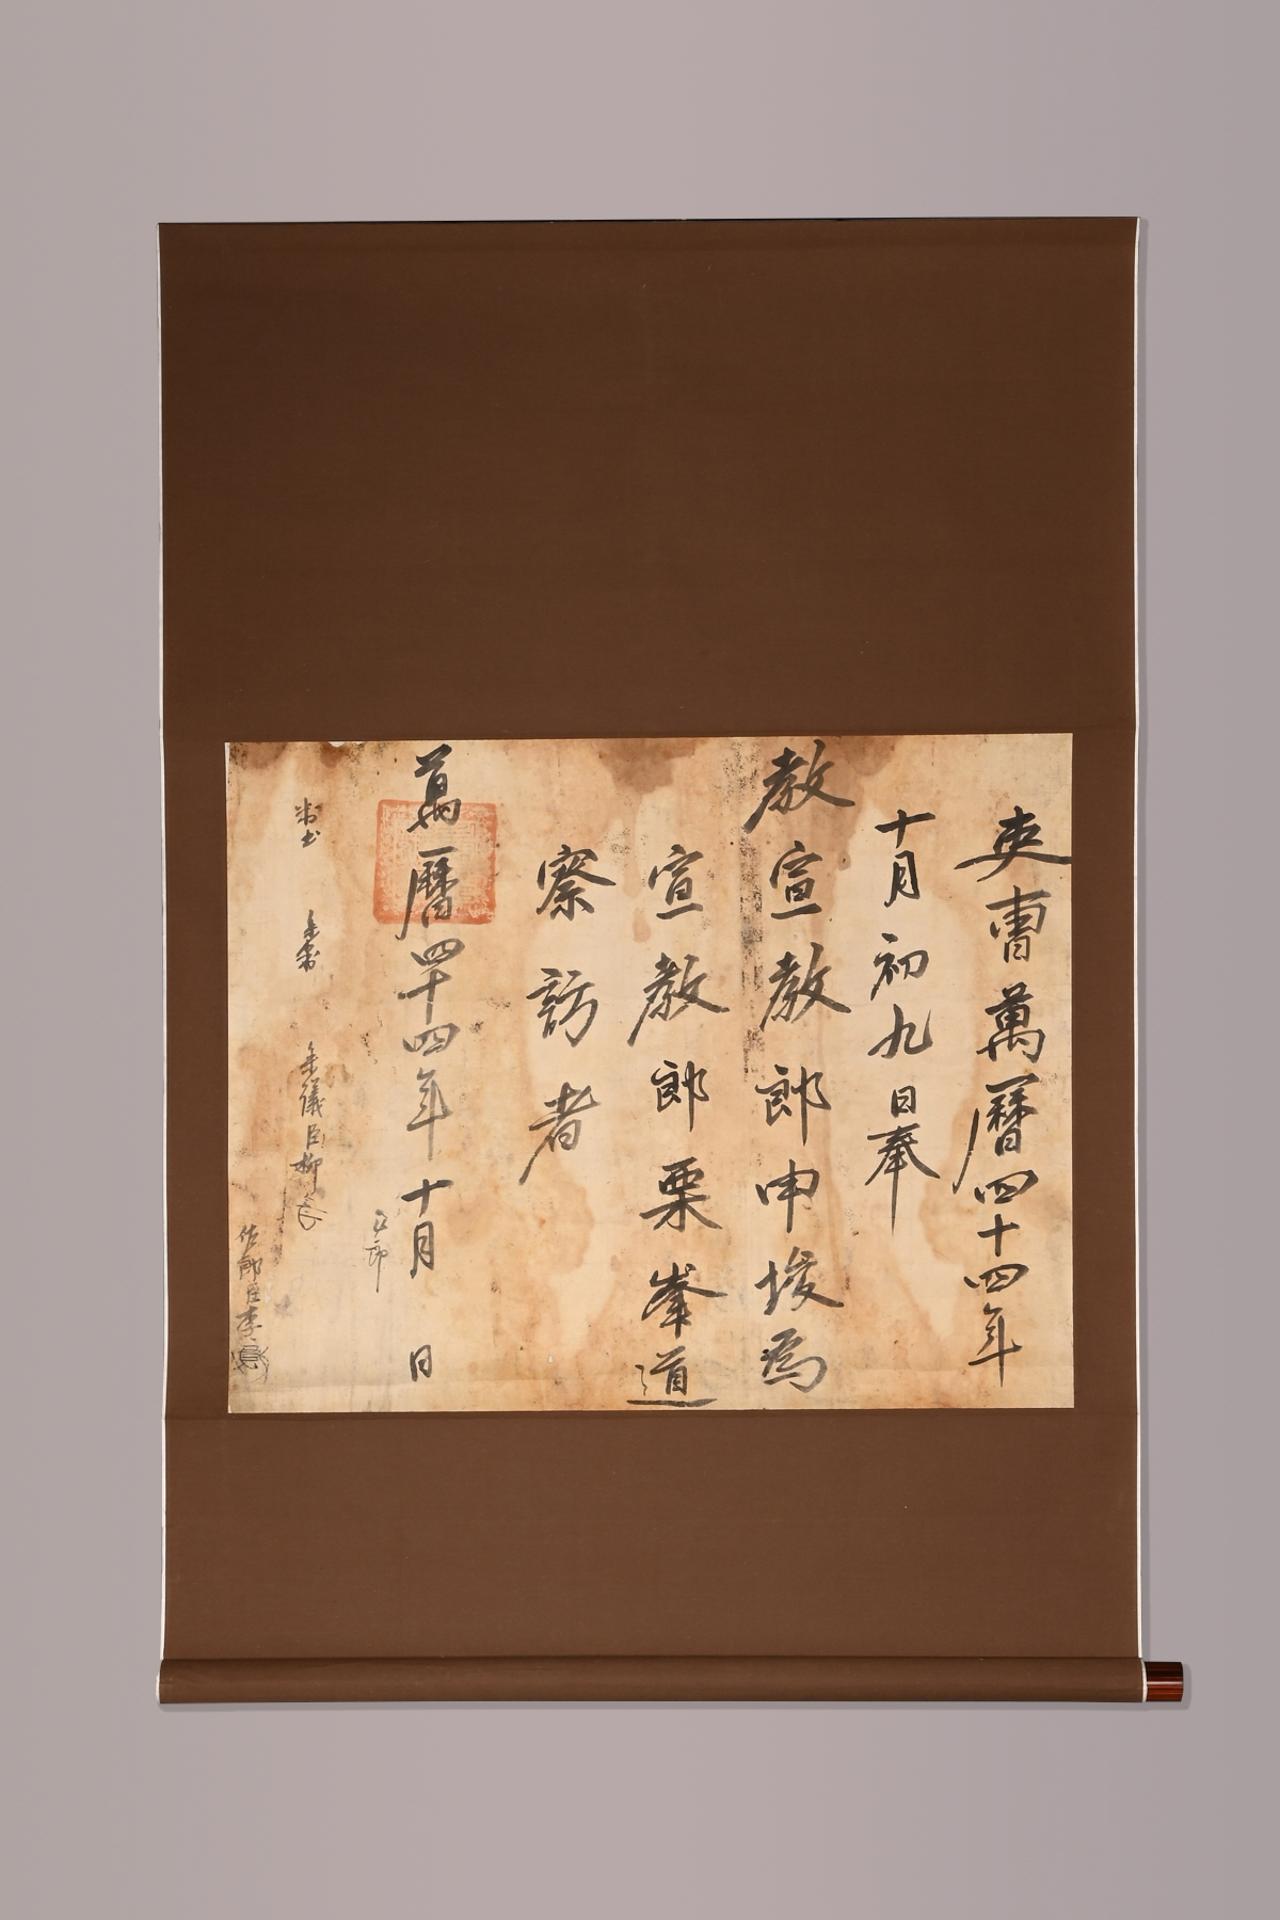 吏曹萬曆四十四年
十月初九日奉
教宣教郎申埈爲
宣教郎栗峯道
察訪者
萬曆四十四年十月 日
正郎
判書
參議臣柳
佐郎臣李